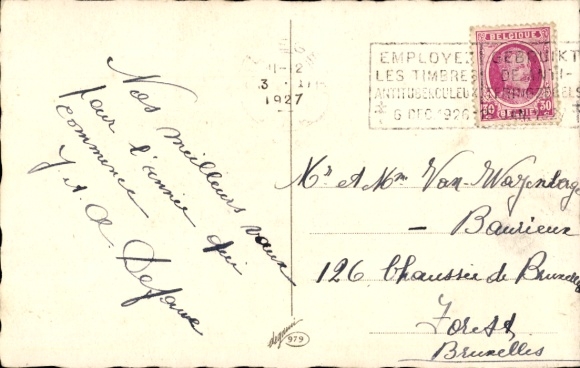 BELGIQUE
11-12
3 · I
1927
EMPLOYEZ GEBRUIKT
LES TIMBRES DE ANTI-
ANTITUBERCULEUX TERINGZEGELS
6 DEC 1926
30 30
Nos meilleurs vœux
pour l'année qui
commence
J. A. Defauw
Mr et Mme Van-
- Baurieux
126 Chaussée de Bruxelles
Forest
Bruxelles
979